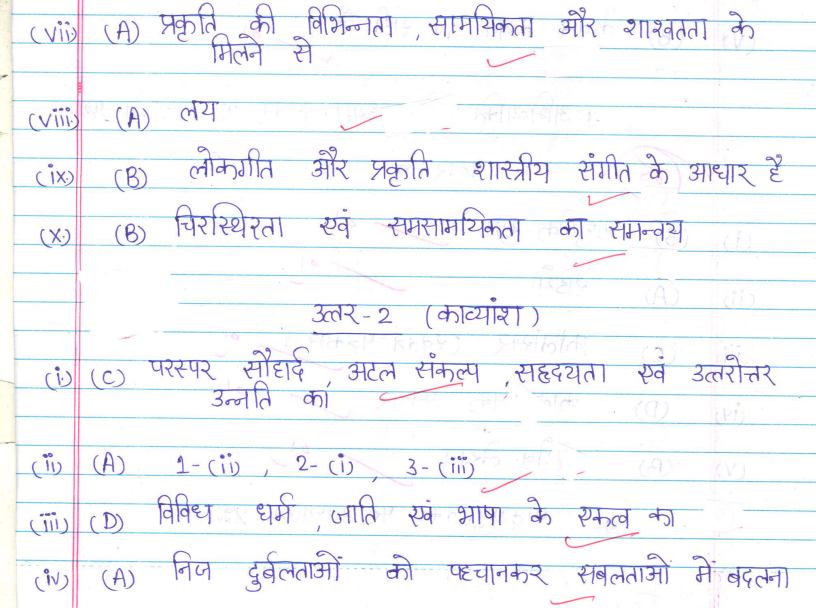 (vii) (A) प्रकृति की विभिन्नता , सामयिकता और शाश्वतता के
मिलने से
(viii) (A) लय
(ix) (B) लोकगीत और प्रकृति शास्त्रीय संगीत के आधार है
(x) (B) चिरस्थिरता एवं समसामयिकता का समन्वय
उत्तर - 2 (काव्यांश)
(i) (C) परस्पर सौहार्द , अटल संकल्प , सहृदयता एवं उत्तरोत्तर
उन्नति का
(ii) (A) 1-(ii) , 2-(i) , 3-(iii)
(iii) (D) विविध धर्म , जाति एवं भाषा के एकत्व का
(iv) (A) निज दुर्बलताओं को पहचानकर सबलताओं में बदलना